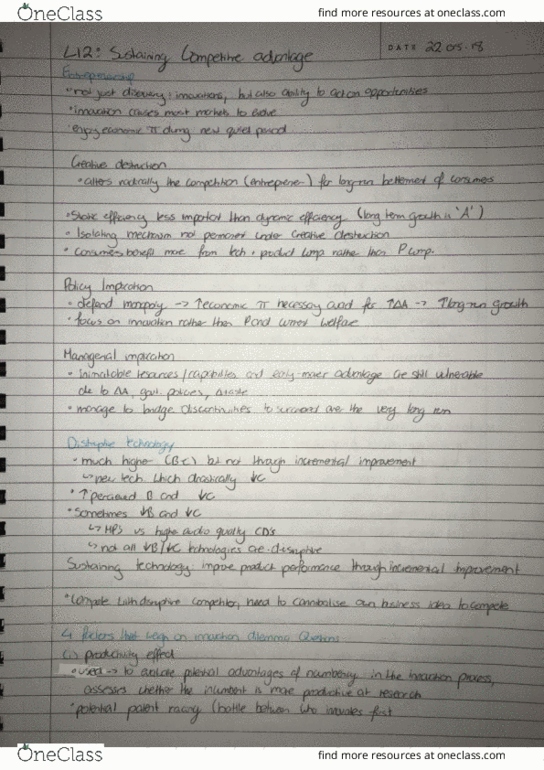 OneClass
find more resources at oneclass.com
L12: Sustaining Competitive advantage
DATE 22.05.18
• not just discovery: innovations, but also ability to act on opportunities
• innovation causes most markets to evolve
• enjoy economic π during new quiet period
Creative destruction
• alters radically the competition (entrepreneur) for long-run betterment of consumers
• Static efficiency less important than dynamic efficiency (long term growth in 'A')
• Isolating mechanism not permanent under creative destruction
• Consumers benefit more from tech + product comp rather than P comp.
Policy Implication
• defend monopoly -> ↑economic π necessary and for ↑ΔA -> ↑long run growth
• focus on innovation rather than P and current welfare
Managerial implication
• inimitable resources/capabilities and early-mover advantage are still vulnerable
due to ΔA, govt. policies, Δtaste
• manage to bridge discontinuities to succeed over the very long run
Disruptive technology
• much higher (B-C) but not through incremental improvement
↳ new tech. which drastically ↓C
• ↑ perceived B and ↓C
• Sometimes ↓B and ↓C
↳ MP3 vs higher audio quality CD's
↳ not all ↓B/↓C technologies are disruptive
Sustaining technology: improve product performance through incremental improvement
• Compete with disruptive competitor, need to cannibalise own business idea to compete
4 factors that weigh on innovation dilemma
(1) productivity effect
• used -> to analyse potential advantages of in the innovation process,
assesses whether the incumbent is more productive at research
• potential patent racing (battle between who innovates first
OneClass
find more resources at oneclass.com